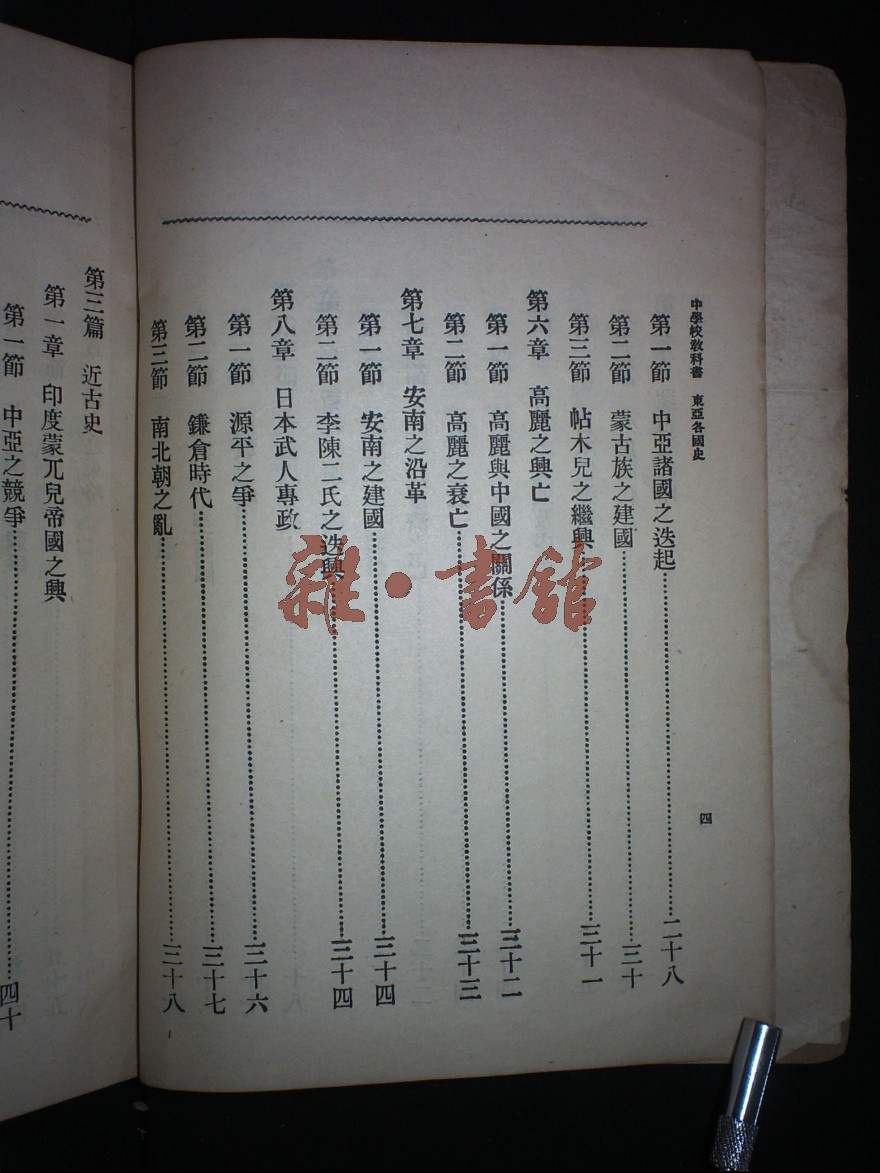 中學校教科書 東亞各國史
四
第一節 中亞諸國之迭起 二十八
第二節 蒙古族之建國 三十
第三節 帖木兒之繼興 三十一
第六章 高麗之興亡
第一節 高麗與中國之關係 三十二
第二節 高麗之衰亡 三十三
第七章 安南之沿革
第一節 安南之建國 三十四
第二節 李陳二氏之迭興 三十四
第八章 日本武人專政
第一節 源平之爭 三十六
第二節 鎌倉時代 三十七
第三節 南北朝之亂 三十八
第三篇 近古史
第一章 印度蒙兀兒帝國之興
第一節 中亞之競爭 四十
雜·書館